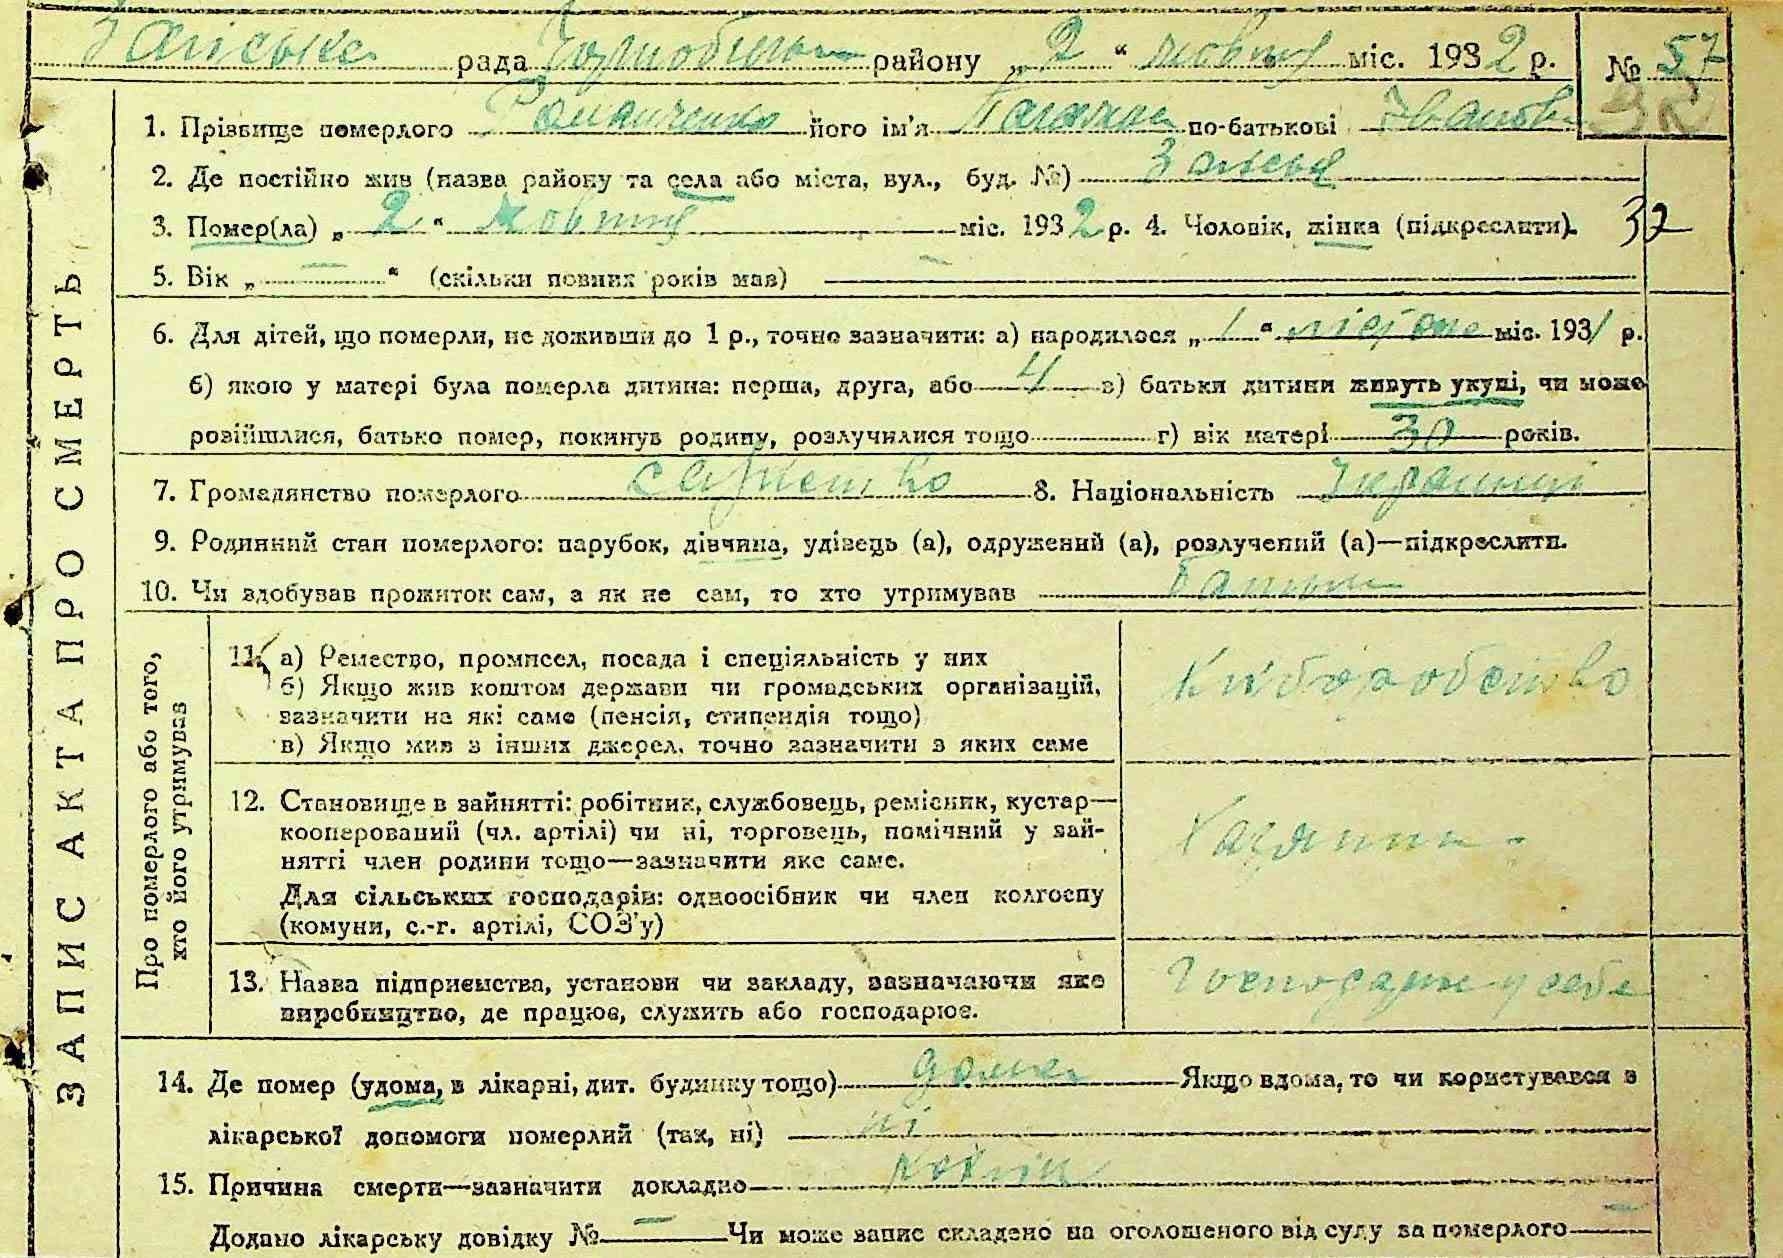 Заліська рада Чорнобильськ району „2" жовтня міс. 1932 р. № 57
1. Прізвище померлого Романченко його ім'я по-батькові Іванов
2. Де постійно жив (назва району та села або міста, вул., буд. №) Залісся
3. Помер(ла) „2" жовтня міс. 1932 р. 4. Чоловік, жінка (підкреслити). 32
5. Вік „ — " (скільки повних років мав) —
6. Для дітей, що померли, не доживши до 1 р., точно зазначити: а) народилося „1" міс. 1931 р.
б) якою у матері була померла дитина: перша, друга, або 4 в) батьки дитини живуть укупі, чи може
розійшлися, батько помер, покинув родину, розлучилися тощо г) вік матері 30 років.
7. Громадянство померлого 8. Національність
9. Родинний стан померлого: парубок, дівчина, удівець (а), одружений (а), розлучений (а)—підкреслити.
10. Чи здобував прожиток сам, а як не сам, то хто утримував батьки
ЗАПИС АКТА ПРО СМЕРТЬ
Про померлого або того,
хто його утримував
11. а) Ремество, промисел, посада і спеціяльність у них
б) Якщо жив коштом держави чи громадських організацій,
зазначити на які саме (пенсія, стипендія тощо)
в) Якщо жив з інших джерел, точно зазначити з яких саме
хліборобство
12. Становище в зайнятті: робітник, службовець, ремісник, кустар—
кооперований (чл. артілі) чи ні, торговець, помічний у зай-
нятті член родини тощо—зазначити яке саме.
Для сільських господарів: одноосібник чи член колгоспу
(комуни, с.-г. артілі, СОЗ'у)
Хазяин
13. Назва підприємства, установи чи закладу, зазначаючи яке
виробництво, де працює, служить або господарює.
у себе
14. Де помер (удома, в лікарні, дит. будинку тощо) дома Якщо вдома, то чи користувався з
лікарської допомоги померлий (так, ні) ні
15. Причина смерти—зазначити докладно
Додано лікарську довідку № — Чи може запис складено на оголошеного від суду за померлого —